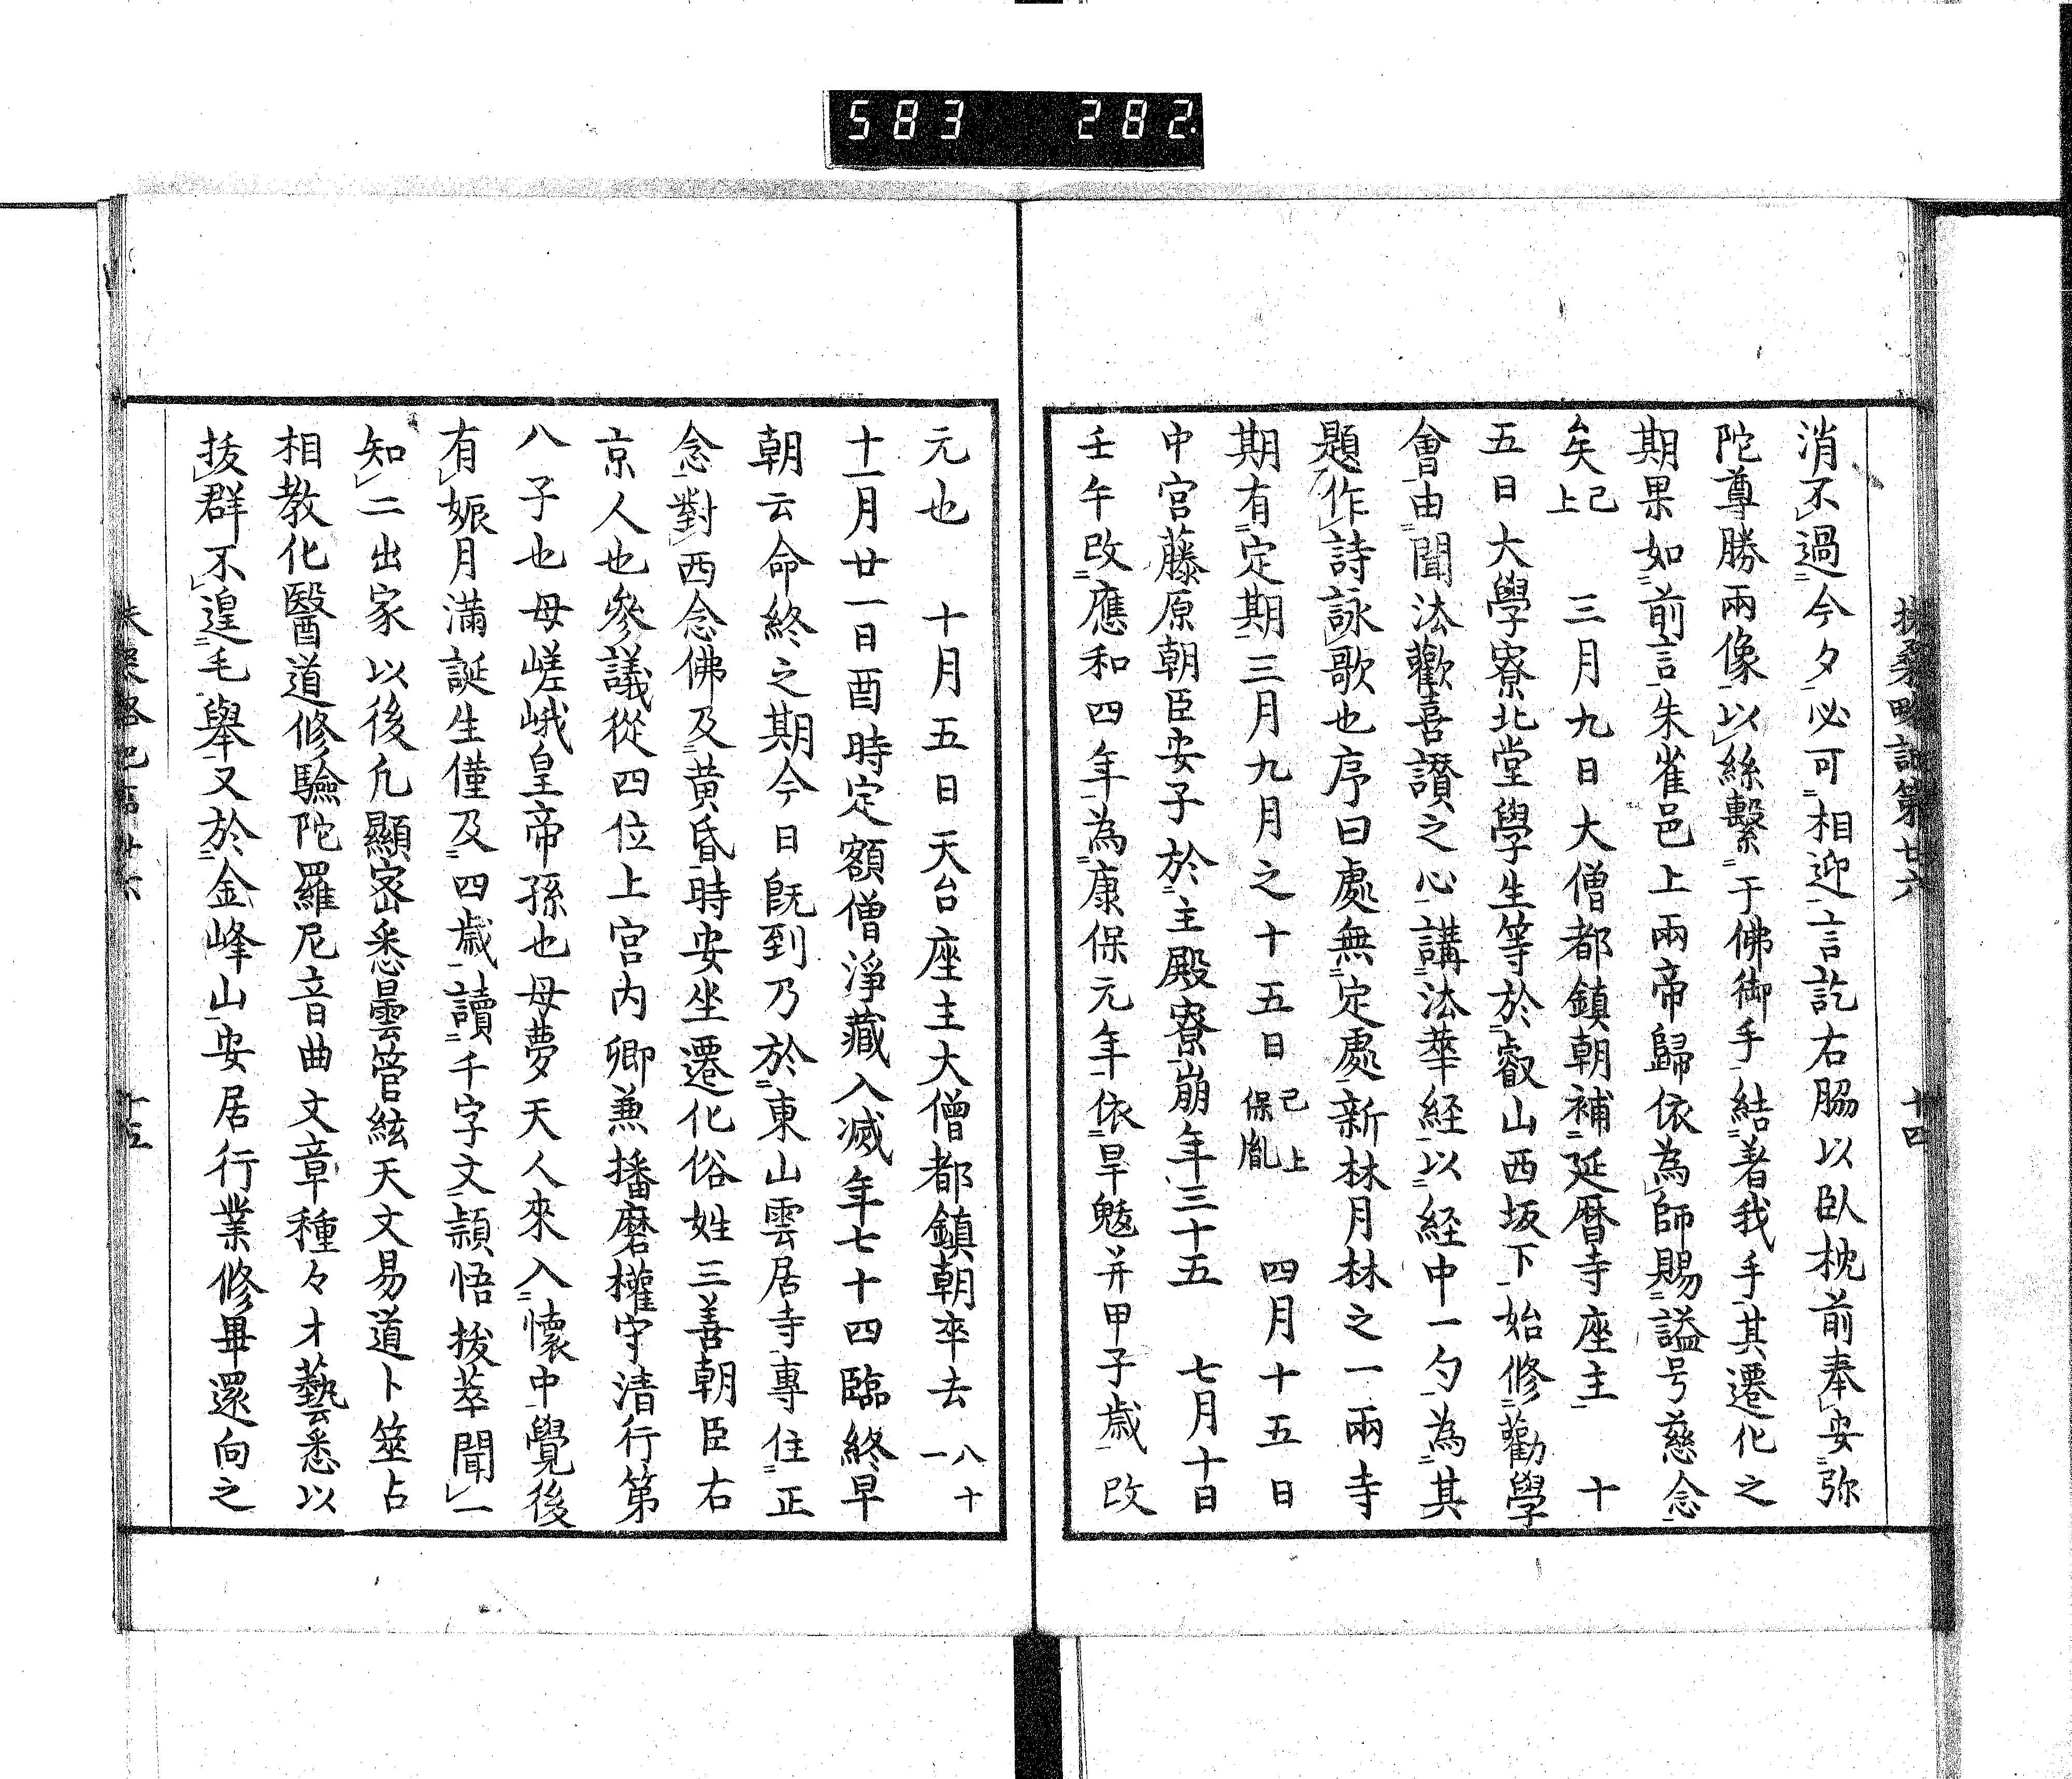 583 282
扶桑略記第廿六 十四
消不過今夕必可相迎言訖右脇以臥枕前奉安弥
陀尊勝兩像以絲繫于佛御手結著我手其遷化之
期果如前言朱雀邑上兩帝歸依為師賜謚号慈念
矣已上 三月九日大僧都鎮朝補延暦寺座主 十
五日大學寮北堂學生等於叡山西坂下始修勸學
會由聞法歡喜讃之心講法華経以経中一句為其
題作詩詠歌也序曰處無定處新林月林之一兩寺
期有定期三月九月之十五日已上保胤 四月十五日
中宮藤原朝臣安子於主殿寮崩年三十五 七月十日
壬午改應和四年為康保元年依旱魃并甲子歳改
元也 十月五日天台座主大僧都鎮朝卒去八十一
十一月廿一日酉時定額僧淨藏入滅年七十四臨終早
朝云命終之期今日既到乃於東山雲居寺專住正
念對西念佛及黄昏時安坐遷化俗姓三善朝臣右
京人也參議從四位上宮内卿兼播磨權守清行第
八子也母嵯峨皇帝孫也母夢天人來入懷中覺後
有娠月満誕生僅及四歳讀千字文頴悟拔萃聞一
知二出家以後凢顯密悉曇管絃天文易道卜筮占
相教化醫道修驗陀羅尼音曲文章種々才藝悉以
拔群不遑毛舉又於金峰山安居行業修畢還向之
扶桑略記第廿六 十五